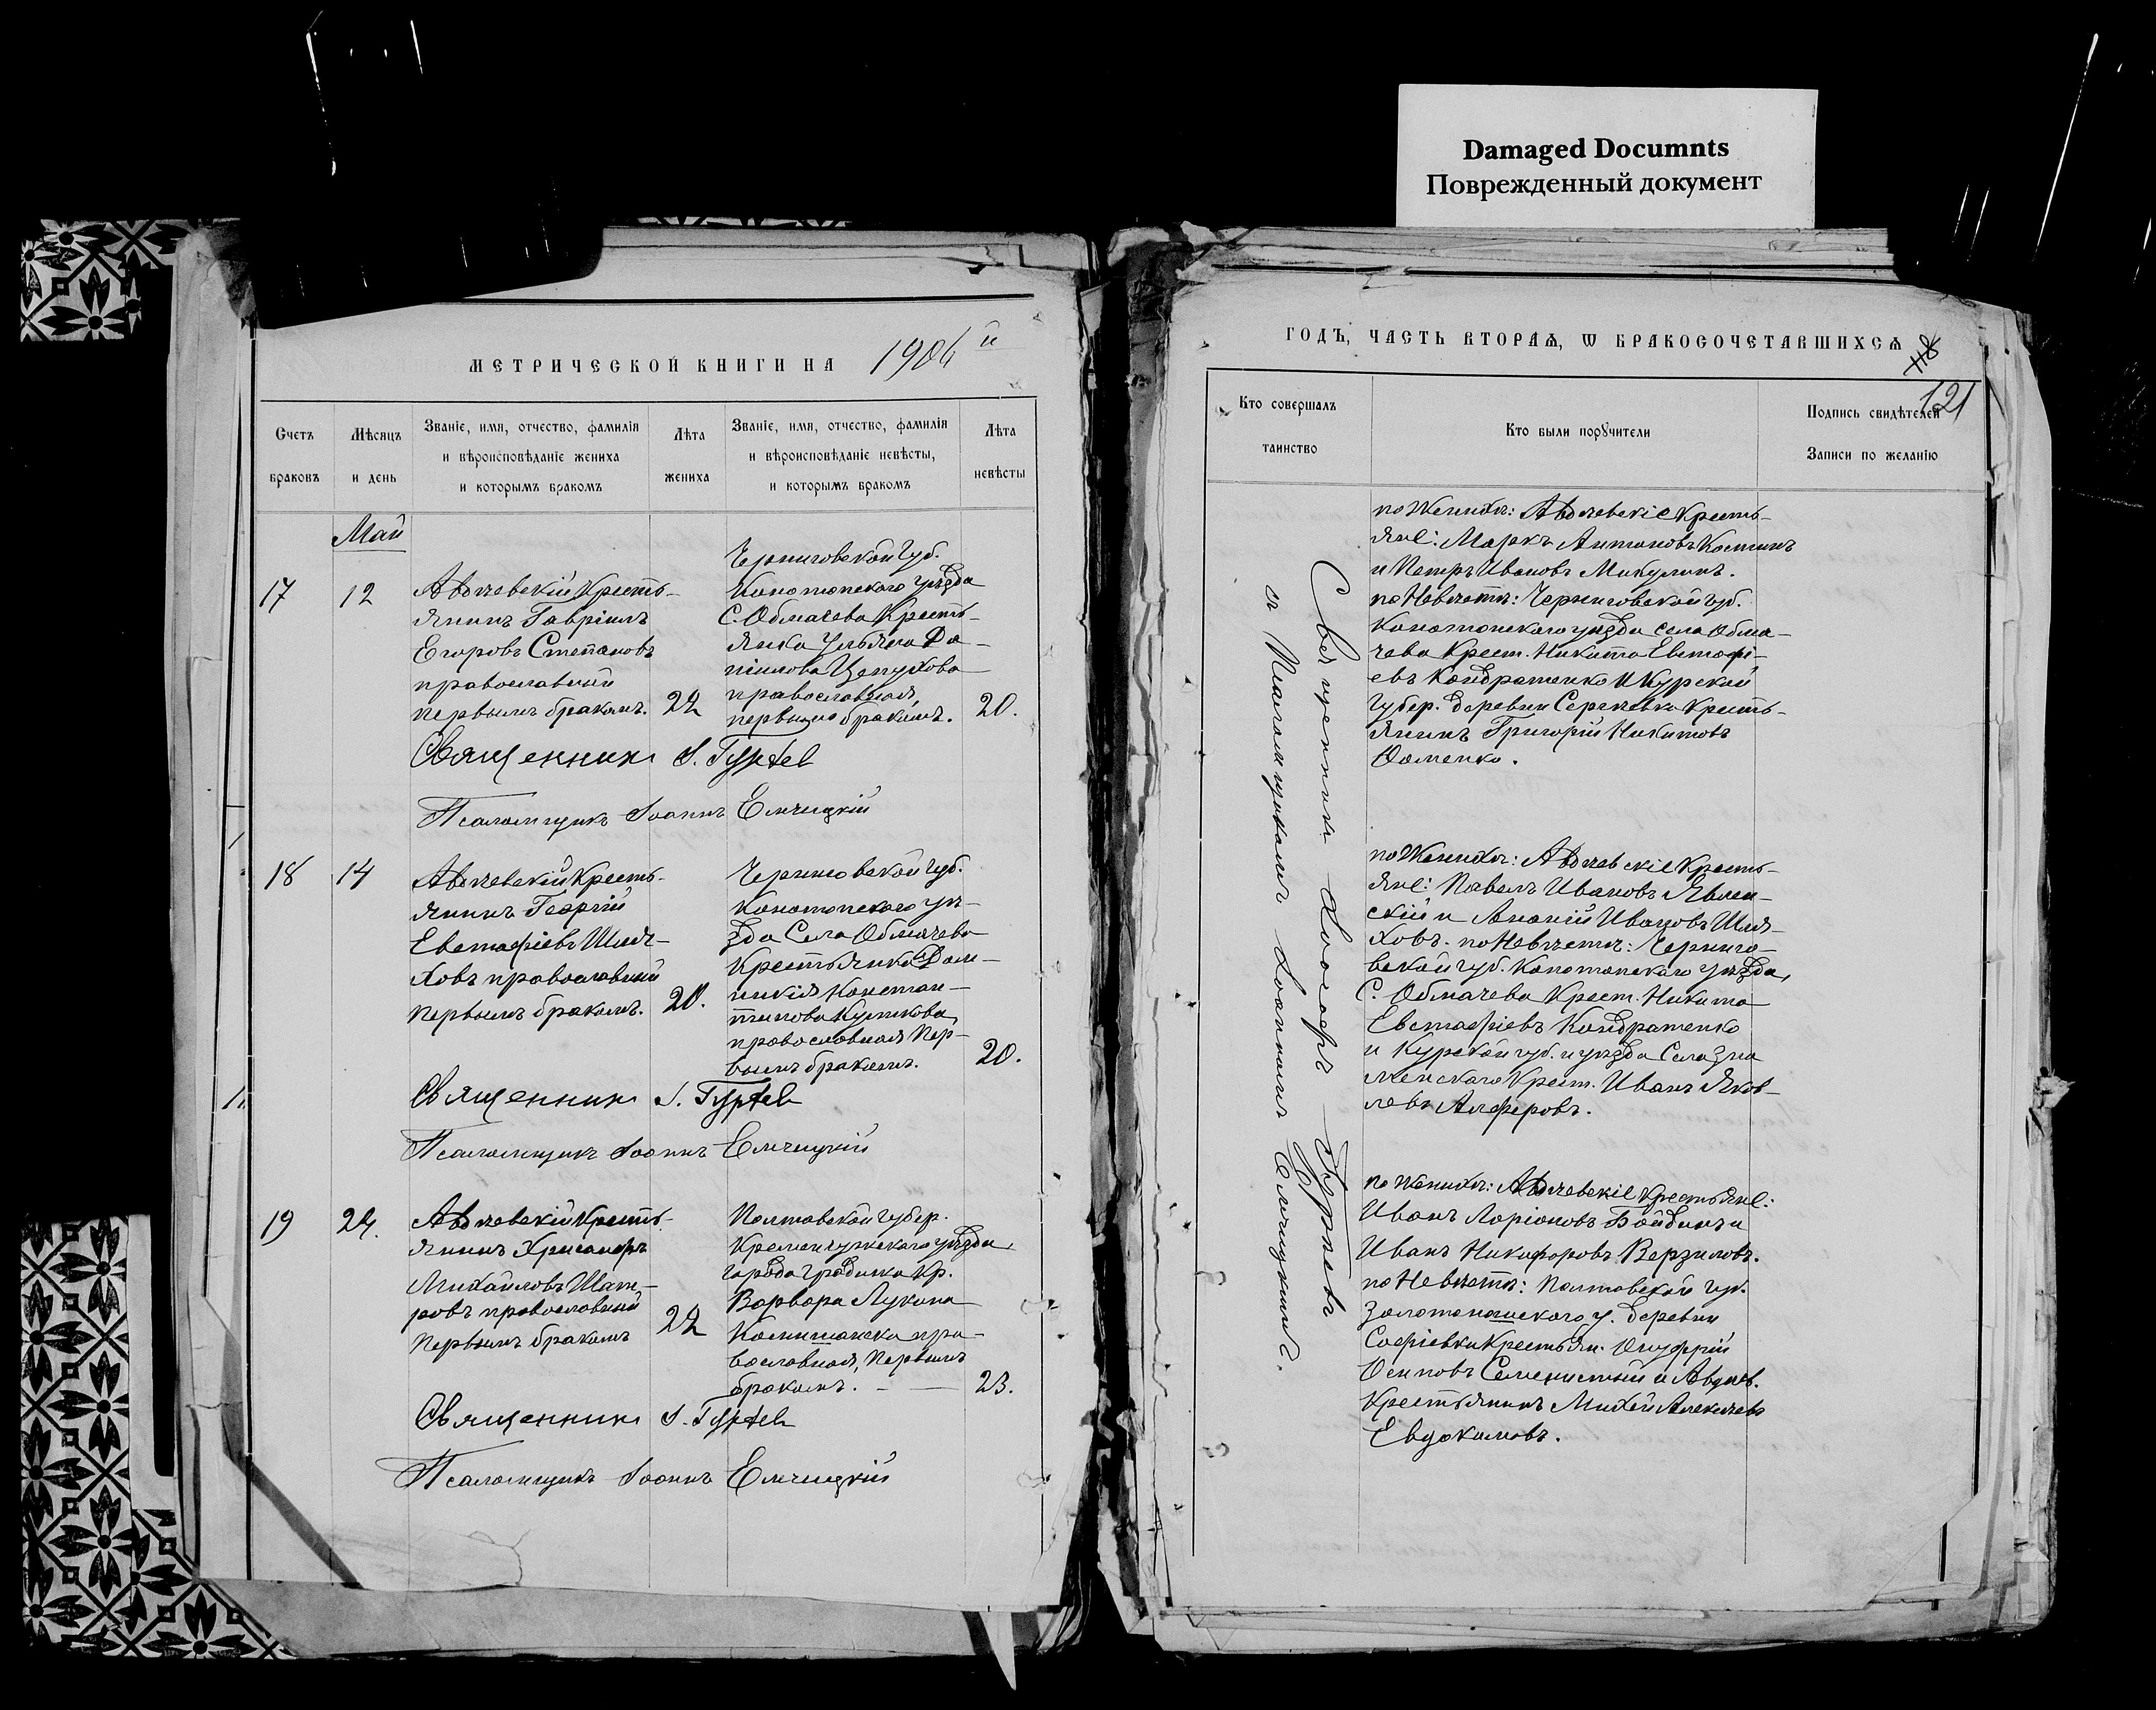 Damaged Documnts
Поврежденный документ
МЕТРИЧЕСКОЙ КНИГИ НА 1906 й
Счетъ браковъ
Мѣсяцъ и день
Званіе, имя, отчество, фамилія
и вѣроисповѣданіе жениха
и которымъ бракомъ
Лѣта жениха
Званіе, имя, отчество, фамилія
и вѣроисповѣданіе невѣсты,
и которымъ бракомъ
Лѣта невѣсты
Май
17
12
Авдѣевскій Кресть-
янинъ Гавріилъ
Егоровъ Степановъ
православный
первымъ бракомъ.
22
Черниговской Губ.
Конотопскаго уѣзда
С. Обмачева Кресть-
янка Ульяна Да-
ніилова
православная
первымъ бракомъ.
20.
Священникъ І. Гурѣев
Псаломщикъ Іоаннъ Емчицкій
18
14
Авдѣевскій Кресть-
янинъ Георгій
Евстафіевъ Шля-
ховъ православный
первымъ бракомъ.
20.
Черниговской губ.
Конотопскаго уѣ-
зда Села Обмачева
Крестьянка Дом-
никія Констан-
тинова
православная пер-
вымъ бракомъ.
20.
Священникъ І. Гурѣев
Псаломщикъ Іоаннъ Емчицкій
19
24.
Авдѣевскій Кресть-
янинъ Хрисанфъ
Михаиловъ Шат-
ровъ православный
первымъ бракомъ
22
Полтавской Губер.
Кременчугскаго уѣзда
города Градижска Кр.
Варвара Лукина
пра-
вославная, первымъ
бракомъ. –
23.
Священникъ І. Гурѣев
Псаломщикъ Іоаннъ Емчицкій
ГОДЪ, ЧАСТЬ ВТОРАЯ, Ѡ БРАКОСОЧЕТАВШИХСЯ
118
121
Кто совершалъ
таинство
Кто были порꙋчители
Подпись свидѣтелей
Записи по желанію
Священникъ Іосифъ Гурѣевъ
съ Псаломщикомъ Іоанномъ Емчицкимъ.
по Женихѣ: Авдѣевскіе Кресть-
яне: Маркъ Антоновъ Костинъ
и Петръ Ивановъ Микулинъ.
по Невѣстѣ: Черниговской губ.
Конотопскаго уѣзда села Обма-
чева Крест. Никита Евстафі-
евъ Кондратенко и Курской
Губер. деревни Кресть-
янинъ Григорій Никитовъ
по Женихѣ: Авдѣевскіе Кресть-
яне: Павелъ Ивановъ
и Ананій Ивановъ Шля-
ховъ. по Невѣстѣ: Чернигo-
вской губ. Конотопскаго уѣзда,
С. Обмачева Крест. Никита
Евстафіевъ Кондратенко
и Курской губ. и уѣзда Села Зна
менскаго Крест. Иванъ Яков-
левъ Алферовъ.
по Женихѣ: Авдѣевскіе крестьяне:
Иванъ Ларіоновъ Байдинъ и
Иванъ Никифоровъ Верзиловъ.
по Невѣстѣ: Полтавской губ.
Золотоношскаго у. деревни
Софіевки Крестьян. Онуфрій
Осиповъ и Авдѣев.
Крестьянинъ Михей Алексѣевъ
Евдокимовъ.